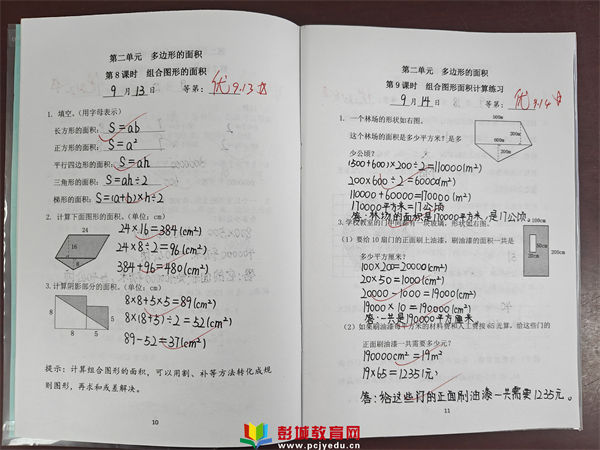 第二单元 多边形的面积
第8课时 组合图形的面积
9月13日 等第：优 9.13
1. 填空。(用字母表示)
长方形的面积：S=ab
正方形的面积：S=a²
平行四边形的面积：S=ah
三角形的面积：S=ah÷2
梯形的面积：S=(a+b)×h÷2
2. 计算下面图形的面积。(单位：cm)
16
8
24
24×16=384(cm²)
24×8÷2=96(cm²)
384+96=480(cm²)
3. 计算阴影部分的面积。(单位：cm)
8
8
5
5
8×8+5×5=89(cm²)
8×(8+5)÷2=52(cm²)
89-52=37(cm²)
提示：计算组合图形的面积，可以用割、补等方法转化成规
则图形，再求和或差解决。
10
第二单元 多边形的面积
第9课时 组合图形面积计算练习
9月14日 等第：优 9.14
1. 一个林场的形状如右图。
这个林场的面积是多少平方米？是多
少公顷？
500m
200m
600m
200m
(500+600)×200÷2=110000(m²)
200×600÷2=60000(m²)
110000+60000=170000(m²)
170000平方米=17公顷
答：林场的面积是170000平方米，是17公顷。
3. 学校教室的门中间都有一块玻璃，形状如右图。
(1) 要给10扇门的正面刷上油漆，刷油漆的面积一共是
多少平方厘米？
200cm
50cm
20cm
100×200=20000(cm²)
20×50=1000(cm²)
20000-1000=19000(cm²)
19000×10=190000(cm²)
答：一共是190000平方厘米
(2) 如果刷油漆每平方米的材料费和人工费按65元算，给这些门的
正面刷油漆一共需要多少元？
190000cm²=19m²
19×65=1235(元)
答：给这些门的正面刷油漆一共需要1235元。
11
彭城教育网
www.pcjyedu.cn